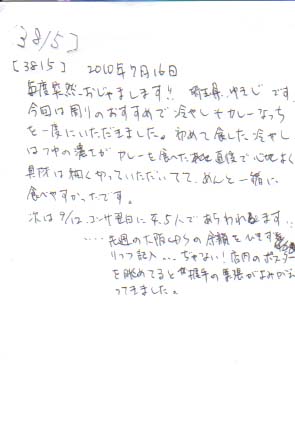 [3815]
[3815] 2010年7月16日
毎度突然おじゃまします!! 埼玉県 ゆきじ です。
今回は周りのおすすめで冷やし+カレーなっち
を一度にいただきました。初めて食した冷やし
はつゆの濃さが カレーを食べた直後で心地よく
具材は細く切っていただいてて、めんと一緒に
食べやすかったです。
次は9/12、コンサ翌日に 5人であらわれます!!
‥‥先週の大阪 の余韻を ひきず
りつつ記入 … ちゃない! 店内のポスター
を眺めてると 握手の緊張がよみがえ
ってきました。